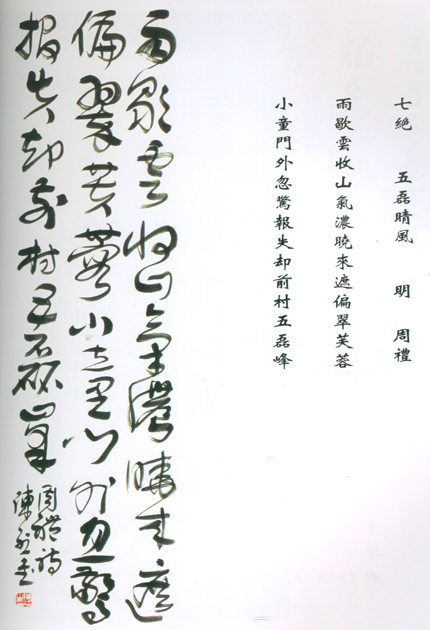 七絕 五磊晴風 明 周禮
雨歇雲收山氣濃曉來遮偏翠芙蓉
小童門外忽驚報失却前村五磊峰
雨歇雲收山氣濃曉來遮
偏翠芙蓉小童門外忽驚
報失却前村五磊峰
周禮詩
陳